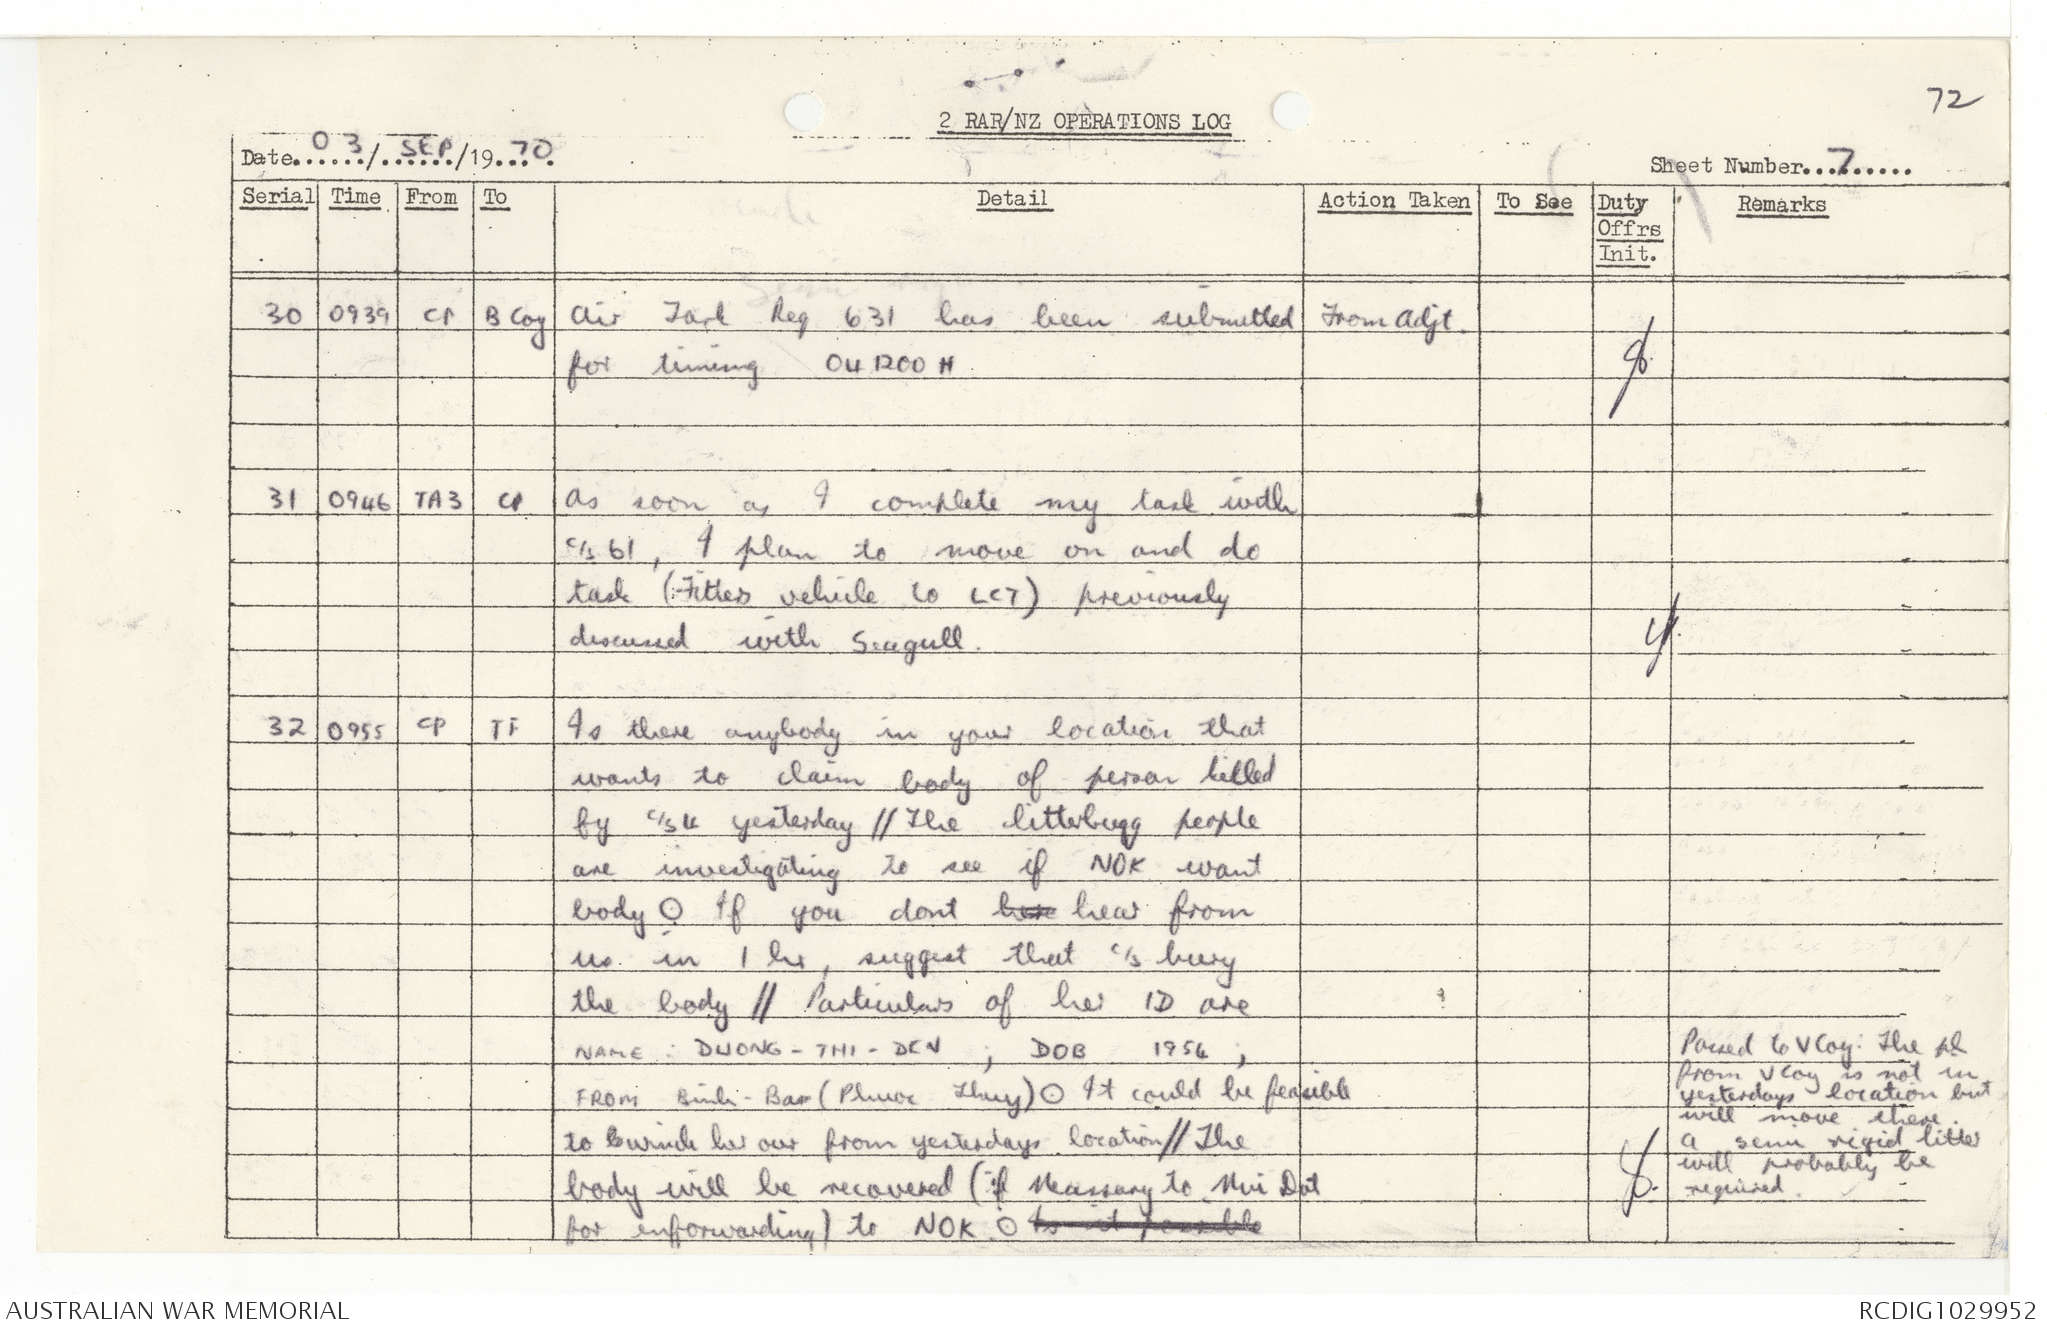 72
2 RAR/NZ OPERATIONS LOG
Date 03/SEP/1970
Sheet Number 7
Serial Time From To Detail Action Taken To See Duty Offrs Init. Remarks
30 0939 CP B Coy Air Task Req 631 has been submitted From Adjt.
for timing 041200H
31 0946 TA3 CP As soon as I complete my task with
c/s 61, I plan to move on and do
task (Fitters vehicle to LCT) previously
discussed with Seagull.
32 0955 CP TF Is there anybody in your location that
wants to claim body of person killed
by c/s 4 yesterday // The litterbugg people
are investigating to see if NOK want
body ⊙ If you dont hear from
us in 1 hr, suggest that c/s bury
the body // Particulars of her ID are
NAME: DUONG-THI-DEN; DOB 1954;
FROM Binh-Bar (Phuoc Thuy) ⊙ It could be feasible
to winch her our from yesterdays location // The
body will be recovered (if Necessary to Nui Dat
for enforwarding) to NOK ⊙ Is it possible
Passed to V Coy: The pl
from V Coy is not in
yesterdays location but
will move there.
A semi rigid litter
will probably be
required.
AUSTRALIAN WAR MEMORIAL
RCDIG1029952